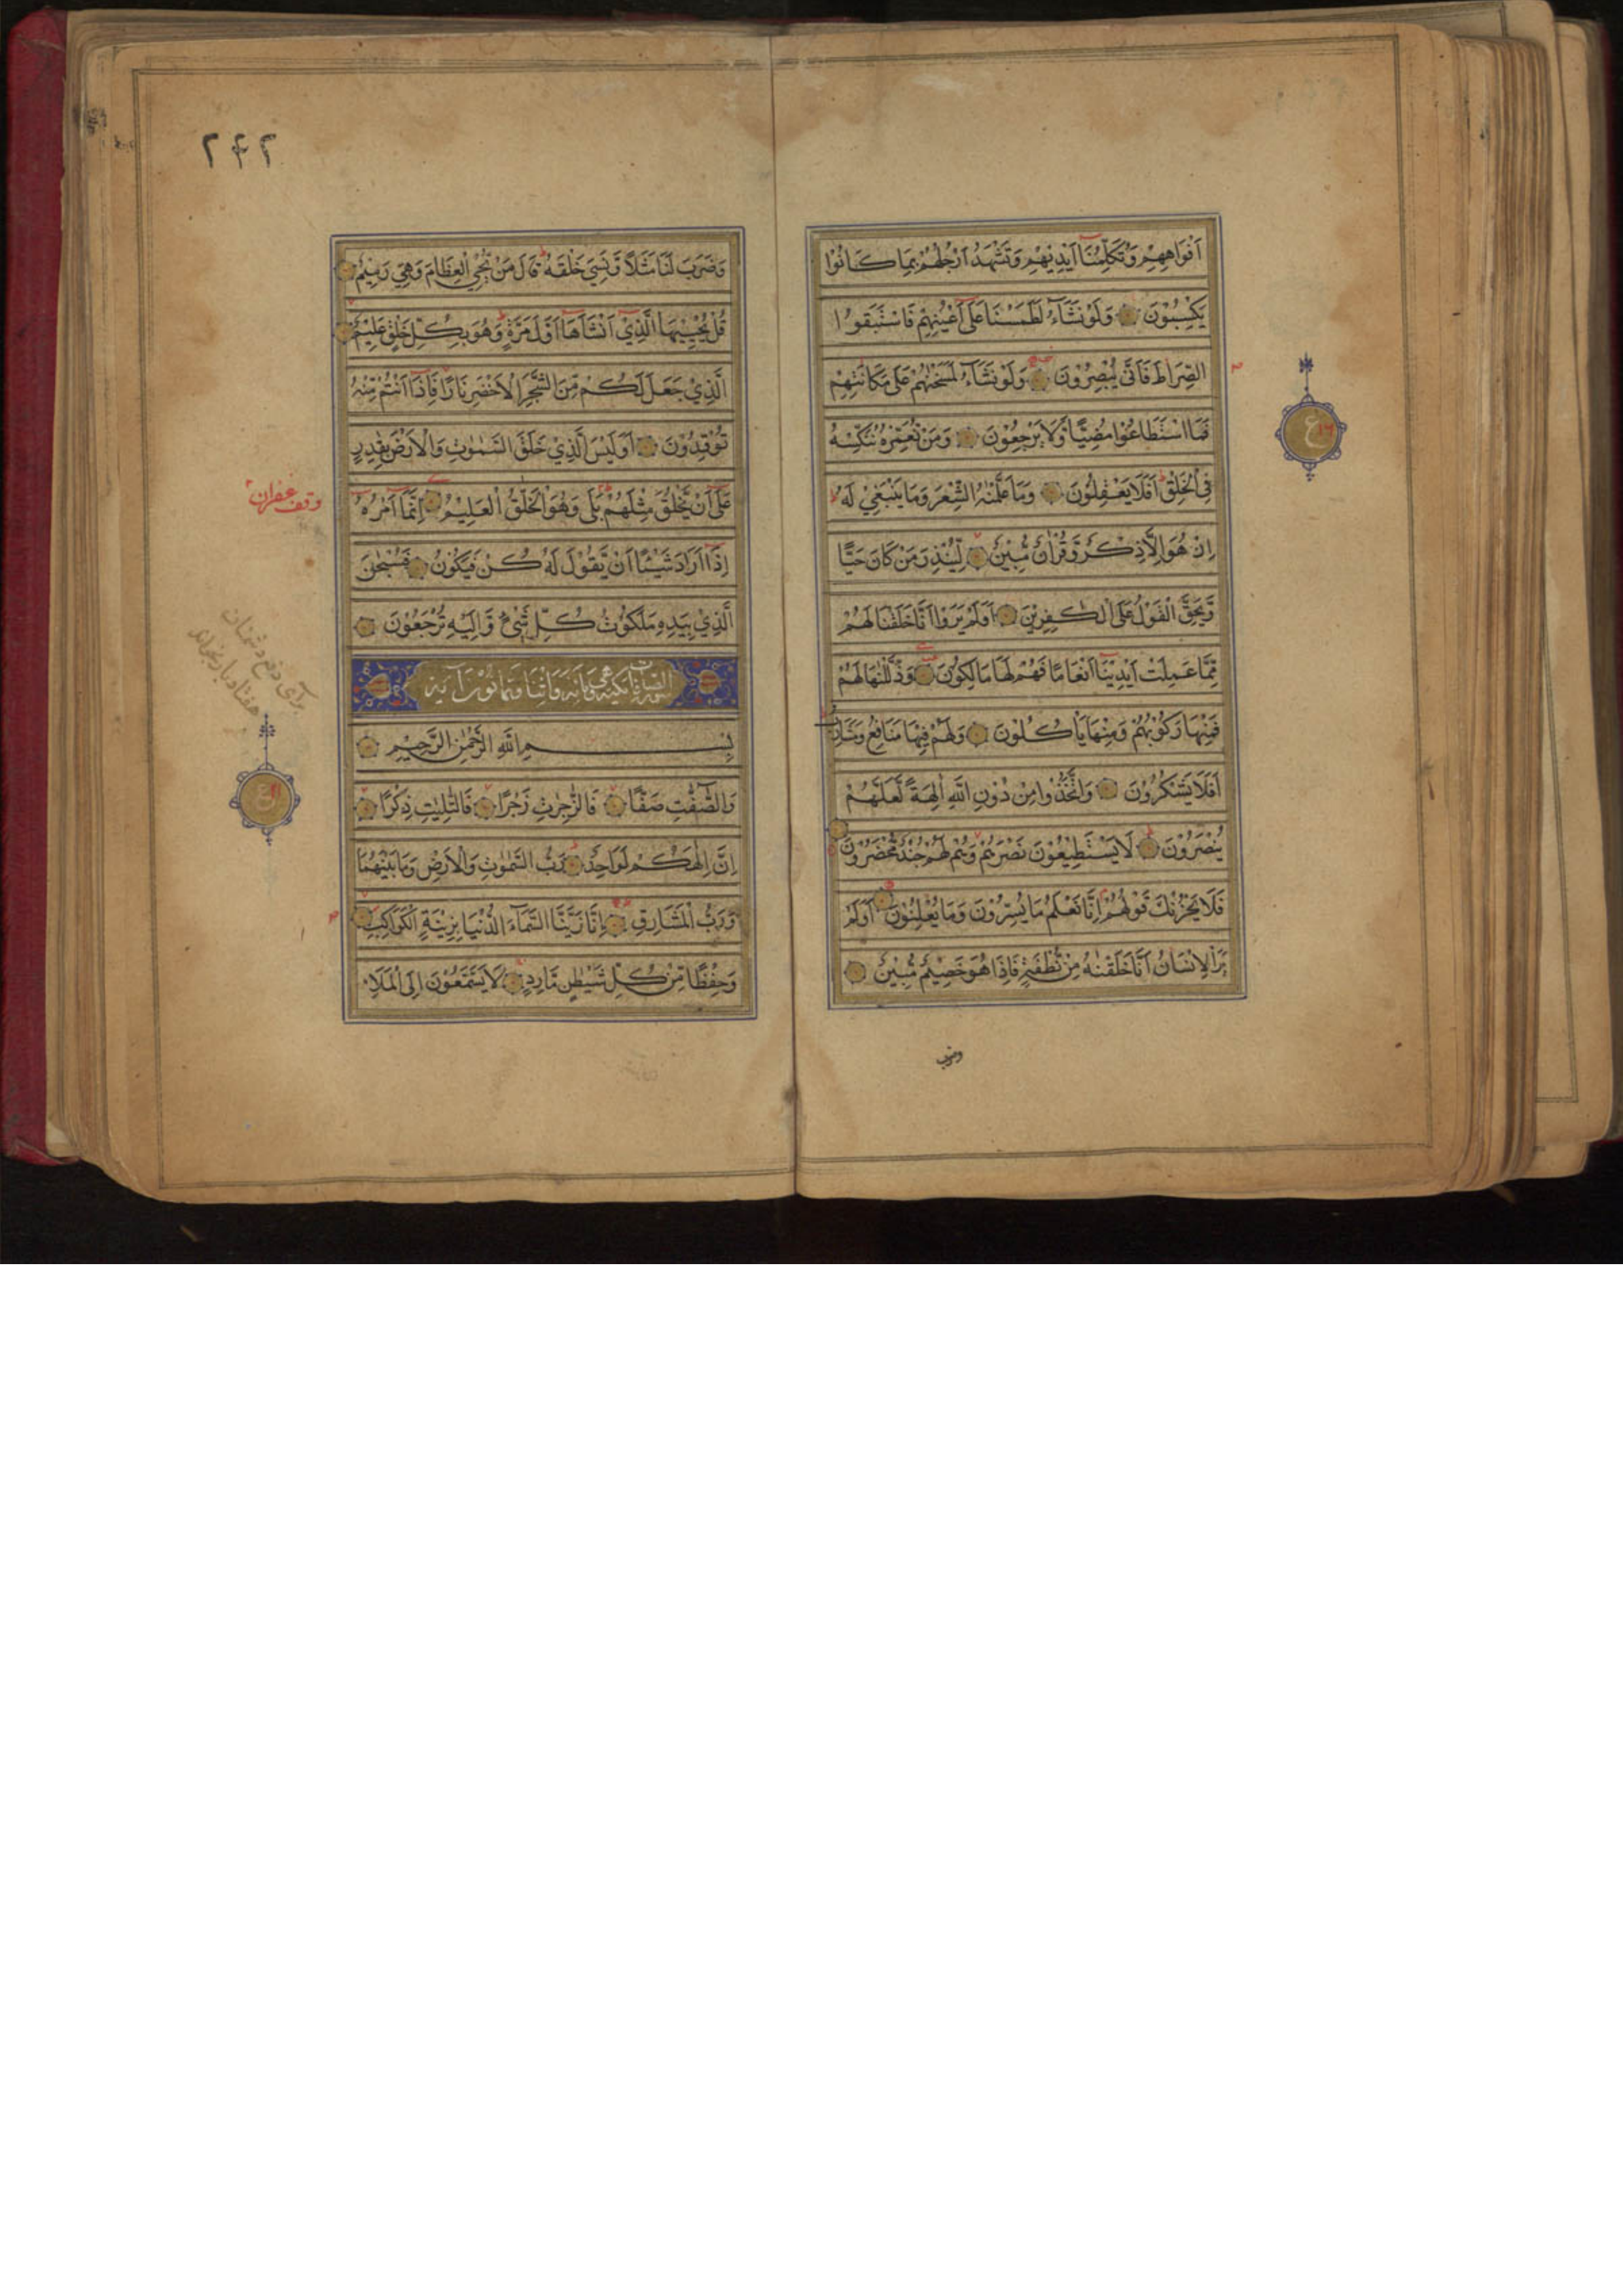 اَفْوَاهِهِمْ وَتُكَلِّمُنَا اَيْدِيْهِمْ وَتَشْهَدُ اَرْجُلُهُمْ بِمَا كَانُوْا
يَكْسِبُوْنَ وَلَوْ نَشَآءُ لَطَمَسْنَا عَلٰٓى اَعْيُنِهِمْ فَاسْتَبَقُوا
الصِّرَاطَ فَاَنّٰى يُبْصِرُوْنَ وَلَوْ نَشَآءُ لَمَسَخْنٰهُمْ عَلٰى مَكَانَتِهِمْ
فَمَا اسْتَطَاعُوْا مُضِيًّا وَّلَا يَرْجِعُوْنَ وَمَنْ نُعَمِّرْهُ نُنَكِّسْهُ
فِى الْخَلْقِ اَفَلَا يَعْقِلُوْنَ وَمَا عَلَّمْنٰهُ الشِّعْرَ وَمَا يَنْبَغِيْ لَهٗ
اِنْ هُوَ اِلَّا ذِكْرٌ وَّقُرْاٰنٌ مُّبِيْنٌ لِّيُنْذِرَ مَنْ كَانَ حَيًّا
وَّيَحِقَّ الْقَوْلُ عَلَى الْكٰفِرِيْنَ اَوَلَمْ يَرَوْا اَنَّا خَلَقْنَا لَهُمْ
مِّمَّا عَمِلَتْ اَيْدِيْنَآ اَنْعَامًا فَهُمْ لَهَا مَالِكُوْنَ وَذَلَّلْنٰهَا لَهُمْ
فَمِنْهَا رَكُوْبُهُمْ وَمِنْهَا يَاْكُلُوْنَ وَلَهُمْ فِيْهَا مَنَافِعُ وَمَشَارِبُ
اَفَلَا يَشْكُرُوْنَ وَاتَّخَذُوْا مِنْ دُوْنِ اللّٰهِ اٰلِهَةً لَّعَلَّهُمْ
يُنْصَرُوْنَ لَا يَسْتَطِيْعُوْنَ نَصْرَهُمْ وَهُمْ لَهُمْ جُنْدٌ مُّحْضَرُوْنَ
فَلَا يَحْزُنْكَ قَوْلُهُمْ اِنَّا نَعْلَمُ مَا يُسِرُّوْنَ وَمَا يُعْلِنُوْنَ اَوَلَمْ
يَرَ الْاِنْسَانُ اَنَّا خَلَقْنٰهُ مِنْ نُّطْفَةٍ فَاِذَا هُوَ خَصِيْمٌ مُّبِيْنٌ
وضرب
ع
٢٤٢
وَضَرَبَ لَنَا مَثَلًا وَّنَسِيَ خَلْقَهٗ قَالَ مَنْ يُّحْيِ الْعِظَامَ وَهِيَ رَمِيْمٌ
قُلْ يُحْيِيْهَا الَّذِيْٓ اَنْشَاَهَآ اَوَّلَ مَرَّةٍ وَهُوَ بِكُلِّ خَلْقٍ عَلِيْمٌ
الَّذِيْ جَعَلَ لَكُمْ مِّنَ الشَّجَرِ الْاَخْضَرِ نَارًا فَاِذَآ اَنْتُمْ مِّنْهُ
تُوْقِدُوْنَ اَوَلَيْسَ الَّذِيْ خَلَقَ السَّمٰوٰتِ وَالْاَرْضَ بِقٰدِرٍ
عَلٰٓى اَنْ يَّخْلُقَ مِثْلَهُمْ بَلٰى وَهُوَ الْخَلّٰقُ الْعَلِيْمُ اِنَّمَآ اَمْرُهٗ
اِذَآ اَرَادَ شَيْئًا اَنْ يَّقُوْلَ لَهٗ كُنْ فَيَكُوْنُ فَسُبْحٰنَ
الَّذِيْ بِيَدِهٖ مَلَكُوْتُ كُلِّ شَيْءٍ وَّاِلَيْهِ تُرْجَعُوْنَ
سورة الصافات مكية وهي مائة واثنا وثمانون آية
بِسْمِ اللّٰهِ الرَّحْمٰنِ الرَّحِيْمِ
وَالصّٰٓفّٰتِ صَفًّا فَالزّٰجِرٰتِ زَجْرًا فَالتّٰلِيٰتِ ذِكْرًا
اِنَّ اِلٰهَكُمْ لَوَاحِدٌ رَبُّ السَّمٰوٰتِ وَالْاَرْضِ وَمَا بَيْنَهُمَا
وَرَبُّ الْمَشَارِقِ اِنَّا زَيَّنَّا السَّمَآءَ الدُّنْيَا بِزِيْنَةِ الْكَوَاكِبِ
وَحِفْظًا مِّنْ كُلِّ شَيْطٰنٍ مَّارِدٍ لَا يَسَّمَّعُوْنَ اِلَى الْمَلَاِ
وقف غفران
برای دفع دشمنان
هفتاد بار بخواند
ع